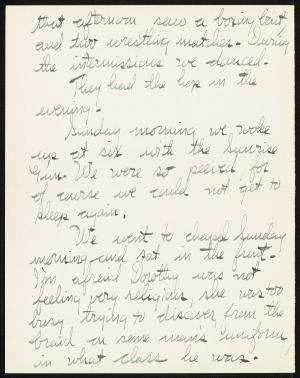 that afternoon saw a boxing bout
and two wrestling matches. During
the intermissions we danced.
They had the hop in the
evening!
Sunday morning we woke
up at six with the sunrise
gun. We were so peeved for
of course we could not get to
sleep again.
We went to chapel Sunday
morning and sat in the front.
I'm afraid Dorothy was not
feeling very religious, she was too
busy trying to discover from the
braid on some man's uniform,
in what class he was.